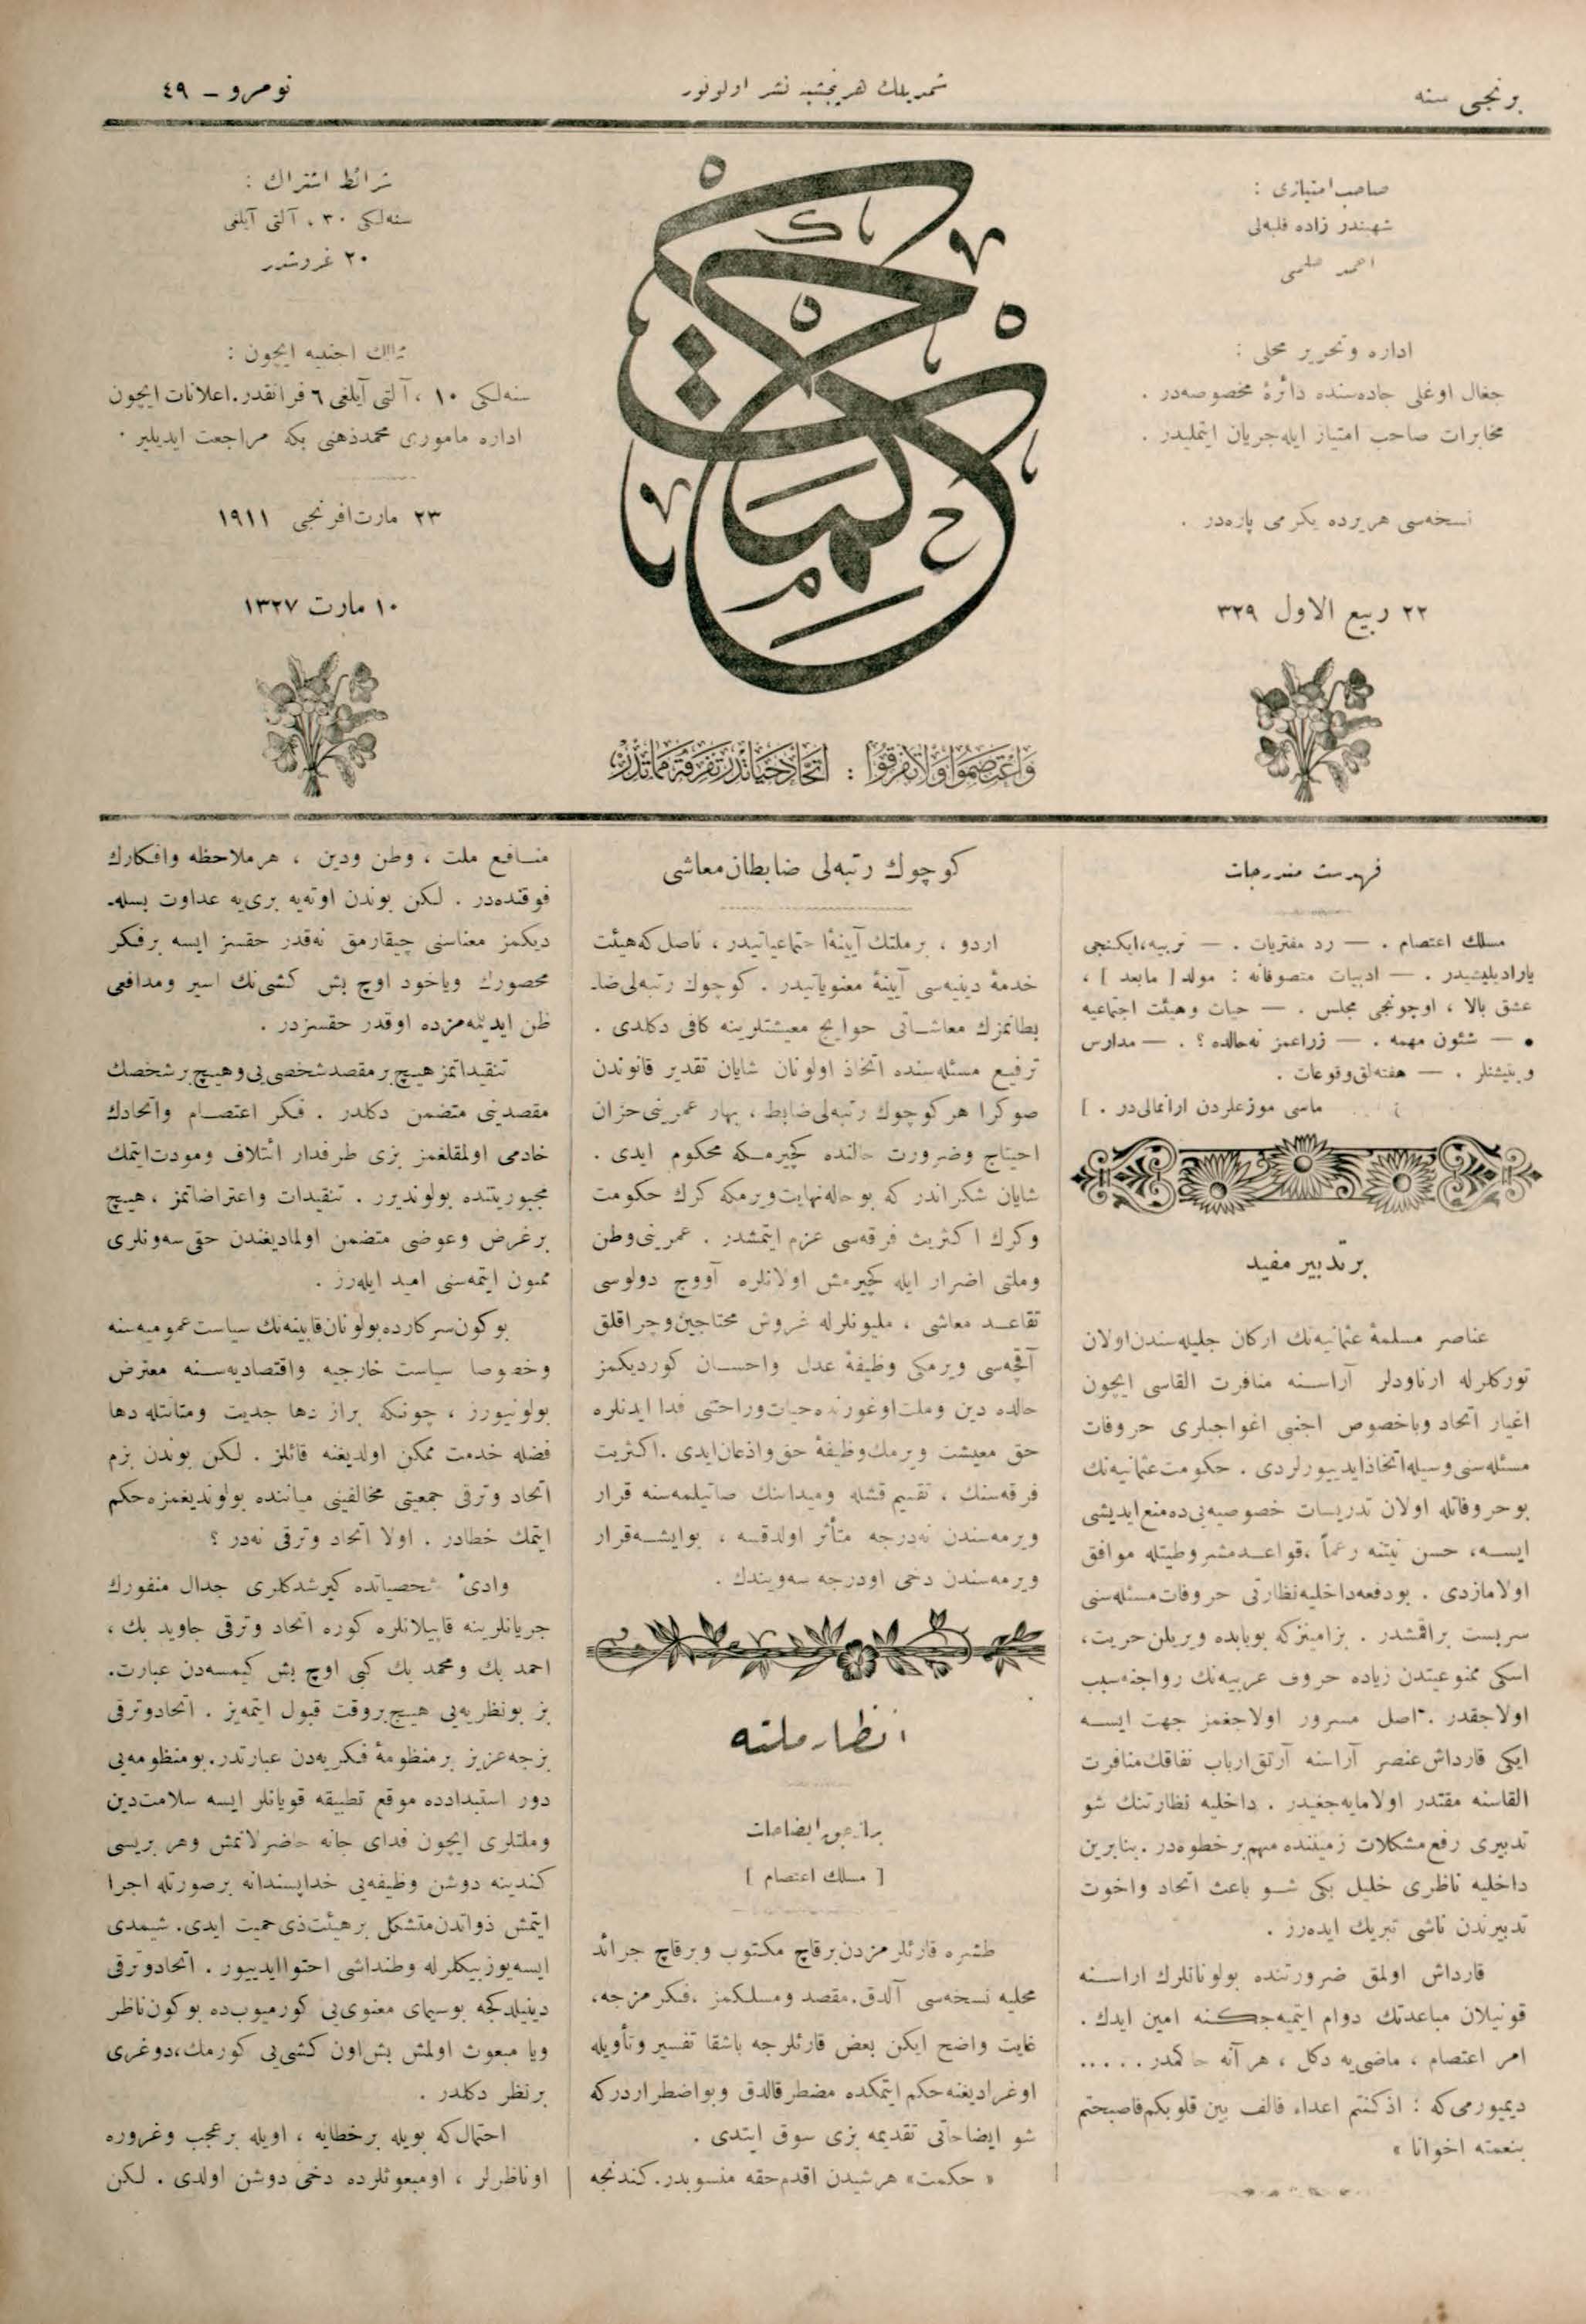 برنجى سنه
شمديلك هر پنجشنبه نشر اولونور
نومرو ــ ٤٩
صاحب امتيازى :
شهبندر زاده فلبه‌لى
احمد حلمى
اداره وتحرير محلى :
جغال اوغلى جاده‌سنده دائرۀ مخصوصه‌در .
مخابرات صاحب امتياز ايله جريان ايتمليدر .
نسخه‌سى هر يرده يكرمى پاره‌در .
٢٢ ربيع الاول ٣٢٩
حكمت
وَاعْتَصِمُوا وَلَا تَفَرَّقُوا : اتحاد حياتدر تفرقه مماتدر
شرائط اشتراك :
سنه‌لكى ٣٠ ، آلتى آيلغى
٢٠ غروشدر
ممالك اجنبيه ايچون :
سنه‌لكى ١٠ ، آلتى آيلغى ٦ فرانقدر . اعلانات ايچون
اداره مامورى محمد ذهنى بكه مراجعت ايديلير .
٢٣ مارت افرنجى ١٩١١
١٠ مارت ١٣٢٧
فهرست مندرجات
مسلك اعتصام . — رد مفتريات . — تربيه ، ايكنجى
ياراديليشيدر . — ادبيات متصوفانه : مولد [ مابعد ] ،
عشق بالا ، اوچونجى مجلس . — حيات وهيئت اجتماعيه
. — شئون مهمه . — زراعمز نه حالده ؟ . — مدارس
ويتيشنلر . — هفته‌لق وقوعات .
موزعلردن آرانمالى‌در . ]
بر تدبير مفيد
عناصر مسلمۀ عثمانيه‌نك اركان جليله‌سندن اولان
توركلرله ارناودلر آراسنه منافرت القاسى ايچون
اغيار اتحاد وباخصوص اجنبى اغواجيلرى حروفات
مسئله‌سنى وسيله اتخاذ ايدييورلردى . حكومت عثمانيه‌نك
بو حروفاتله اولان تدريسات خصوصيه‌يى ده منع ايديشى
ايسه ، حسن نيتنه رغماً ، قواعد مشروطيتله موافق
اولامازدى . بو دفعه داخليه نظارتى حروفات مسئله‌سنى
سربست براقمشدر . بز امينز كه بو بابده ويريلن حريت ،
اسكى ممنوعيتدن زياده حروف عربيه‌نك رواجنه سبب
اولاجقدر . اصل مسرور اولاجغمز جهت ايسه
ايكى قارداش عنصر آراسنه آرتق ارباب نفاقك منافرت
القاسنه مقتدر اولامايه‌جغيدر . داخليه نظارتنك شو
تدبيرى رفع مشكلات زميننده مهم بر خطوه‌در . بنابرين
داخليه ناظرى خليل بكى شو باعث اتحاد واخوت
تدبيرندن ناشى تبريك ايده‌رز .
قارداش اولمق ضرورتنده بولونانلرك اراسنه
قونيلان مباعدتك دوام ايتميه‌جكنه امين ايدك .
امر اعتصام ، ماضى‌يه دكل ، هر آنه حاكمدر . . . . .
ديميورمى كه : اذ كنتم اعداء فالف بين قلوبكم فاصبحتم
بنعمته اخوانا »
كوچوك رتبه‌لى ضابطان معاشى
اردو ، بر ملتك آيينۀ اجتماعياتيدر ، ناصل كه هيئت
خدمۀ دينيه‌سى آيينۀ معنوياتيدر . كوچوك رتبه‌لى ضا-
بطانمزك معاشاتى حوايج معيشتلرينه كافى دكلدى .
ترفيع مسئله‌سنده اتخاذ اولونان شايان تقدير قانوندن
صوكرا هر كوچوك رتبه‌لى ضابط ، بهار عمرينى خزان
احتياج وضرورت حالنده كچيرمكه محكوم ايدى .
شايان شكراندر كه بو حاله نهايت ويرمكه كرك حكومت
وكرك اكثريت فرقه‌سى عزم ايتمشدر . عمرينى وطن
وملتى اضرار ايله كچيرمش اولانلره آووج دولوسى
تقاعد معاشى ، مليونلرله غروش محتاجين وچراقلق
آقچه‌سى ويرمكى وظيفۀ عدل واحسان كورديكمز
حالده دين وملت اوغورنده حيات وراحتنى فدا ايدنلره
حق معيشت ويرمك وظيفۀ حق واذعان ايدى . اكثريت
فرقه‌سنك ، تقسيم قشله وميداننك صاتيلمه‌سنه قرار
ويرمه‌سندن نه‌درجه متأثر اولدقسه ، بو ايشه قرار
ويرمه‌سندن دخى اودرجه سه‌ويندك .
انظار ملته
براز عبوق ايضاحات
[ مسلك اعتصام ]
طشره قارئلرمزدن برقاچ مكتوب وبرقاچ جرائد
محليه نسخه‌سى آلدق . مقصد ومسلكمز ، فكرمزجه ،
غايت واضح ايكن بعض قارئلرجه باشقا تفسير وتأويله
اوغراديغنه حكم ايتمكده مضطر قالدق وبو اضطراردر كه
شو ايضاحاتى تقديمه بزى سوق ايتدى .
« حكمت » هر شيدن اقدم حقه منسوبدر . كندنجه
منافع ملت ، وطن ودين ، هر ملاحظه وافكارك
فوقنده‌در . لكن بوندن اوته‌يه برى‌يه عداوت بسله-
ديكمز معناسنى چيقارمق نه‌قدر حقسز ايسه بر فكر
محصورك وياخود اوچ بش كشى‌نك اسير ومدافعى
ظن ايديلمه‌مزده اوقدر حقسزدر .
تنقيداتمز هيچ بر مقصد شخصى‌يى وهيچ بر شخصك
مقصدينى متضمن دكلدر . فكر اعتصام واتحادك
خادمى اولمقلغمز بزى طرفدار ائتلاف ومودت ايتمك
مجبوريتنده بولونديرر . تنقيدات واعتراضاتمز ، هيچ
بر غرض وعوضى متضمن اولماديغندن حقى سه‌ونلرى
ممنون ايتمه‌سنى اميد ايله‌رز .
بو كون سر كارده بولونان قابينه‌نك سياست عموميه‌سنه
وخصوصا سياست خارجيه واقتصاديه‌سنه معترض
بولونيورز ، چونكه براز دها جديت ومتانتله دها
فضله خدمت ممكن اولديغنه قائلز . لكن بوندن بزم
اتحاد وترقى جمعيتى مخالفينى مياننده بولونديغمزه حكم
ايتمك خطادر . اولا اتحاد وترقى نه‌در ؟
وادئ شخصياتده كيرشدكلرى جدال منفورك
جريانلرينه قاپيلانلره كوره اتحاد وترقى جاويد بك ،
احمد بك ومحمد بك كبى اوچ بش كيمسه‌دن عبارت .
بز بو نظريه‌يى هيچ بر وقت قبول ايتمه‌يز . اتحاد وترقى
بزجه عزيز بر منظومۀ فكريه‌دن عبارتدر . بو منظومه‌يى
دور استبدادده موقع تطبيقه قويانلر ايسه سلامت دين
وملتلرى ايچون فداى جانه حاضرلانمش وهر بريسى
كندينه دوشن وظيفه‌يى خداپسندانه بر صورتله اجرا
ايتمش ذواتدن متشكل بر هيئت ذى حميت ايدى . شيمدى
ايسه يوز بيكلرله وطنداشى احتوا ايدييور . اتحاد وترقى
دينيلدكجه بو سيماى معنوى‌يى كورميوب ده بو كون ناظر
ويا مبعوث اولمش بش اون كشى‌يى كورمك ، دوغرى
بر نظر دكلدر .
احتمال كه بويله بر خطايه ، اويله بر عجب وغروره
او ناظرلر ، او مبعوثلرده دخى دوشن اولدى . لكن